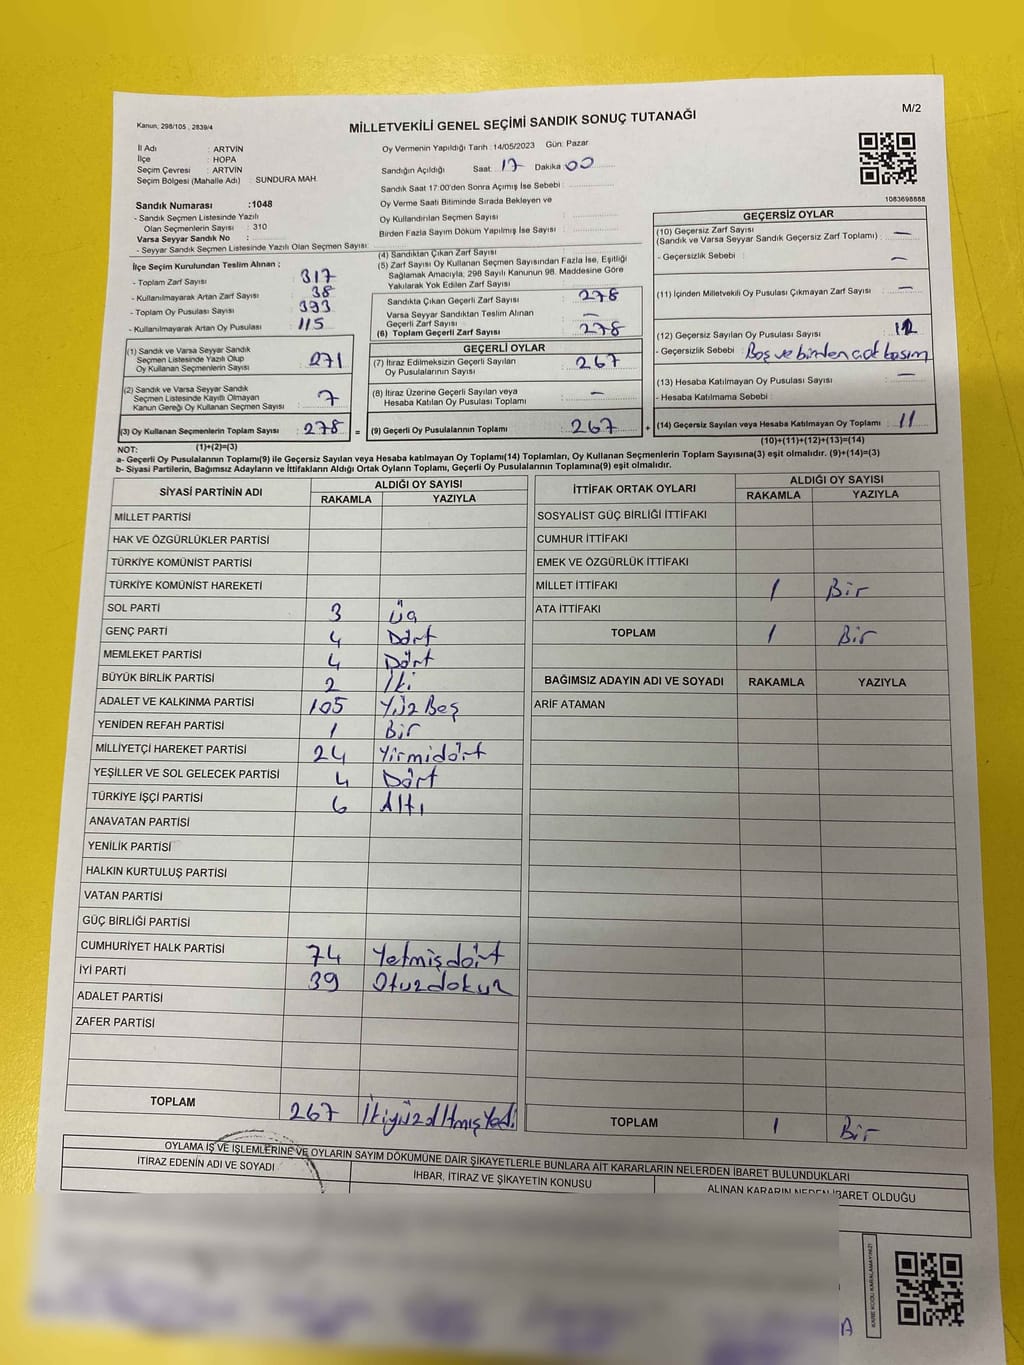 Kanun, 298/105 , 2839/4
M/2
MİLLETVEKİLİ GENEL SEÇİMİ SANDIK SONUÇ TUTANAĞI
İl Adı : ARTVİN
İlçe : HOPA
Seçim Çevresi : ARTVİN
Seçim Bölgesi (Mahalle Adı) : SUNDURA MAH.
Sandık Numarası :1048
- Sandık Seçmen Listesinde Yazılı
Olan Seçmenlerin Sayısı : 310
Varsa Seyyar Sandık No :
- Seyyar Sandık Seçmen Listesinde Yazılı Olan Seçmen Sayısı:
Oy Vermenin Yapıldığı Tarih : 14/05/2023 Gün: Pazar
Sandığın Açıldığı Saat: 17 Dakika: 00
Sandık Saat 17:00'den Sonra Açımış İse Sebebi :
Oy Verme Saati Bitiminde Sırada Bekleyen ve
Oy Kullandırılan Seçmen Sayısı :
Birden Fazla Sayım Döküm Yapılmış İse Sayısı :
1083698888
İlçe Seçim Kurulundan Teslim Alınan ;
- Toplam Zarf Sayısı : 317
- Kullanılmayarak Artan Zarf Sayısı : 38
- Toplam Oy Pusulası Sayısı : 393
- Kullanılmayarak Artan Oy Pusulası : 115
(1) Sandık ve Varsa Seyyar Sandık
Seçmen Listesinde Yazılı Olup
Oy Kullanan Seçmenlerin Sayısı : 271
(2) Sandık ve Varsa Seyyar Sandık
Seçmen Listesinde Kayıtlı Olmayan
Kanun Gereği Oy Kullanan Seçmen Sayısı : 7
(3) Oy Kullanan Seçmenlerin Toplam Sayısı : 278 =
(1)+(2)=(3)
(4) Sandıktan Çıkan Zarf Sayısı
(5) Zarf Sayısı Oy Kullanan Seçmen Sayısından Fazla İse, Eşitliği
Sağlamak Amacıyla, 298 Sayılı Kanunun 98. Maddesine Göre
Yakılarak Yok Edilen Zarf Sayısı :
Sandıkta Çıkan Geçerli Zarf Sayısı : 278
Varsa Seyyar Sandıktan Teslim Alınan
Geçerli Zarf Sayısı : —
(6) Toplam Geçerli Zarf Sayısı : 278
GEÇERLİ OYLAR
(7) İtiraz Edilmeksizin Geçerli Sayılan
Oy Pusulalarının Sayısı : 267
(8) İtiraz Üzerine Geçerli Sayılan veya
Hesaba Katılan Oy Pusulası Toplamı : —
(9) Geçerli Oy Pusulalarının Toplamı : 267 +
GEÇERSİZ OYLAR
(10) Geçersiz Zarf Sayısı
(Sandık ve Varsa Seyyar Sandık Geçersiz Zarf Toplamı) : —
- Geçersizlik Sebebi : —
(11) İçinden Milletvekili Oy Pusulası Çıkmayan Zarf Sayısı : —
(12) Geçersiz Sayılan Oy Pusulası Sayısı :
- Geçersizlik Sebebi : Boş ve birden çok basım
(13) Hesaba Katılmayan Oy Pusulası Sayısı : —
- Hesaba Katılmama Sebebi :
(14) Geçersiz Sayılan veya Hesaba Katılmayan Oy Toplamı : 11
(10)+(11)+(12)+(13)=(14)
NOT:
a- Geçerli Oy Pusulalarının Toplamı(9) ile Geçersiz Sayılan veya Hesaba katılmayan Oy Toplamı(14) Toplamları, Oy Kullanan Seçmenlerin Toplam Sayısına(3) eşit olmalıdır. (9)+(14)=(3)
b- Siyasi Partilerin, Bağımsız Adayların ve İttifakların Aldığı Ortak Oyların Toplamı, Geçerli Oy Pusulalarının Toplamına(9) eşit olmalıdır.
SİYASİ PARTİNİN ADI ALDIĞI OY SAYISI
RAKAMLA YAZIYLA
MİLLET PARTİSİ
HAK VE ÖZGÜRLÜKLER PARTİSİ
TÜRKİYE KOMÜNİST PARTİSİ
TÜRKİYE KOMÜNİST HAREKETİ
SOL PARTİ 3 Üç
GENÇ PARTİ 4 Dört
MEMLEKET PARTİSİ 4 Dört
BÜYÜK BİRLİK PARTİSİ 2 İki
ADALET VE KALKINMA PARTİSİ 105 Yüz Beş
YENİDEN REFAH PARTİSİ 1 Bir
MİLLİYETÇİ HAREKET PARTİSİ 24 Yirmidört
YEŞİLLER VE SOL GELECEK PARTİSİ 4 Dört
TÜRKİYE İŞÇİ PARTİSİ 6 Altı
ANAVATAN PARTİSİ
YENİLİK PARTİSİ
HALKIN KURTULUŞ PARTİSİ
VATAN PARTİSİ
GÜÇ BİRLİĞİ PARTİSİ
CUMHURİYET HALK PARTİSİ 74 Yetmişdört
İYİ PARTİ 39 Otuzdokuz
ADALET PARTİSİ
ZAFER PARTİSİ
TOPLAM 267 İkiyüzaltmışYedi
İTTİFAK ORTAK OYLARI ALDIĞI OY SAYISI
RAKAMLA YAZIYLA
SOSYALİST GÜÇ BİRLİĞİ İTTİFAKI
CUMHUR İTTİFAKI
EMEK VE ÖZGÜRLÜK İTTİFAKI
MİLLET İTTİFAKI 1 Bir
ATA İTTİFAKI
TOPLAM 1 Bir
BAĞIMSIZ ADAYIN ADI VE SOYADI RAKAMLA YAZIYLA
ARİF ATAMAN
TOPLAM 1 Bir
OYLAMA İŞ VE İŞLEMLERİNE VE OYLARIN SAYIM DÖKÜMÜNE DAİR ŞİKAYETLERLE BUNLARA AİT KARARLARIN NELERDEN İBARET BULUNDUKLARI
İTİRAZ EDENİN ADI VE SOYADI
İHBAR, İTİRAZ VE ŞİKAYETİN KONUSU
ALINAN KARARIN NEDEN İBARET OLDUĞU
KARE KODU KARALAMAYINIZ!